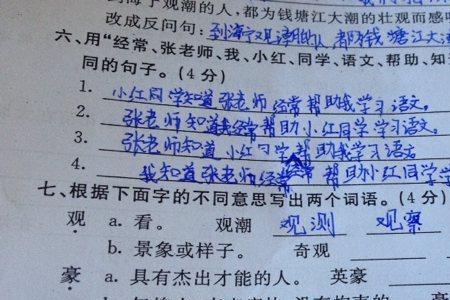 到海宁观潮的人,都为钱塘江大潮的壮观而感
改成反问句:到海宁观潮的人 都为钱塘江大
六、用“经常、张老师、我、小红、同学、语文、帮助、知
同的句子。(4分)
1. 小红同学知道张老师经常帮助我学习语文。
2. 张老师知道我经常帮助小红同学学习语文。
3. 张老师知道小红同学经常帮助我学习语文
4. 我知道张老师经常帮助小红同学学
七、根据下面字的不同意思写出两个词语。(4分)
观 a. 看。 观潮 观测 观察
b. 景象或样子。 奇观
豪 a. 具有杰出才能的人。 英豪